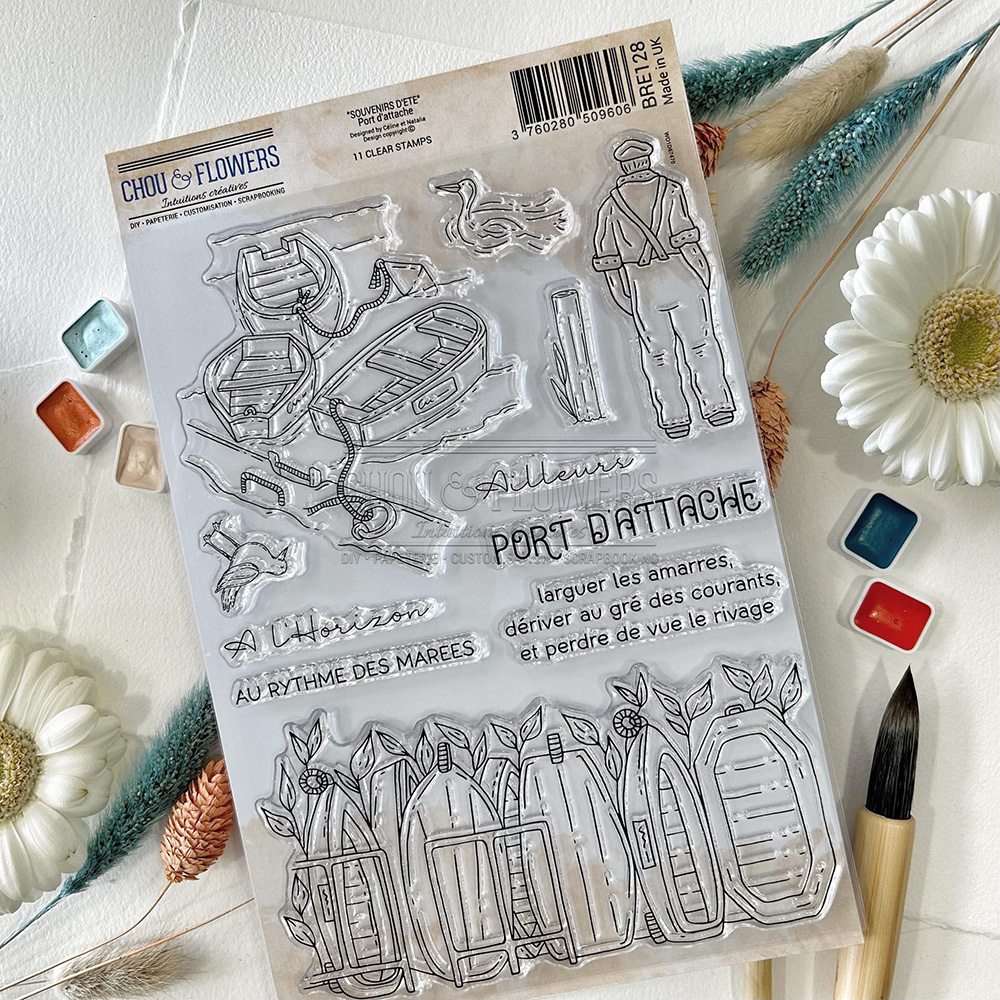 CHOU & FLOWERS
Intuitions créatives
DIY • PAPETERIE • CUSTOMISATION • SCRAPBOOKING
"SOUVENIRS D'ETE"
Port d'attache
Designed by Céline et Natalia
Design copyright©
11 CLEAR STAMPS
3 760280 509606
BRE128
Made in UK
Ailleurs
PORT D'ATTACHE
larguer les amarres,
dériver au gré des courants,
et perdre de vue le rivage
A l'Horizon
AU RYTHME DES MAREES
CHOU & FLOWERS
Intuitions créatives
DIY • PAPETERIE • CUSTOMISATION • SCRAPBOOKING